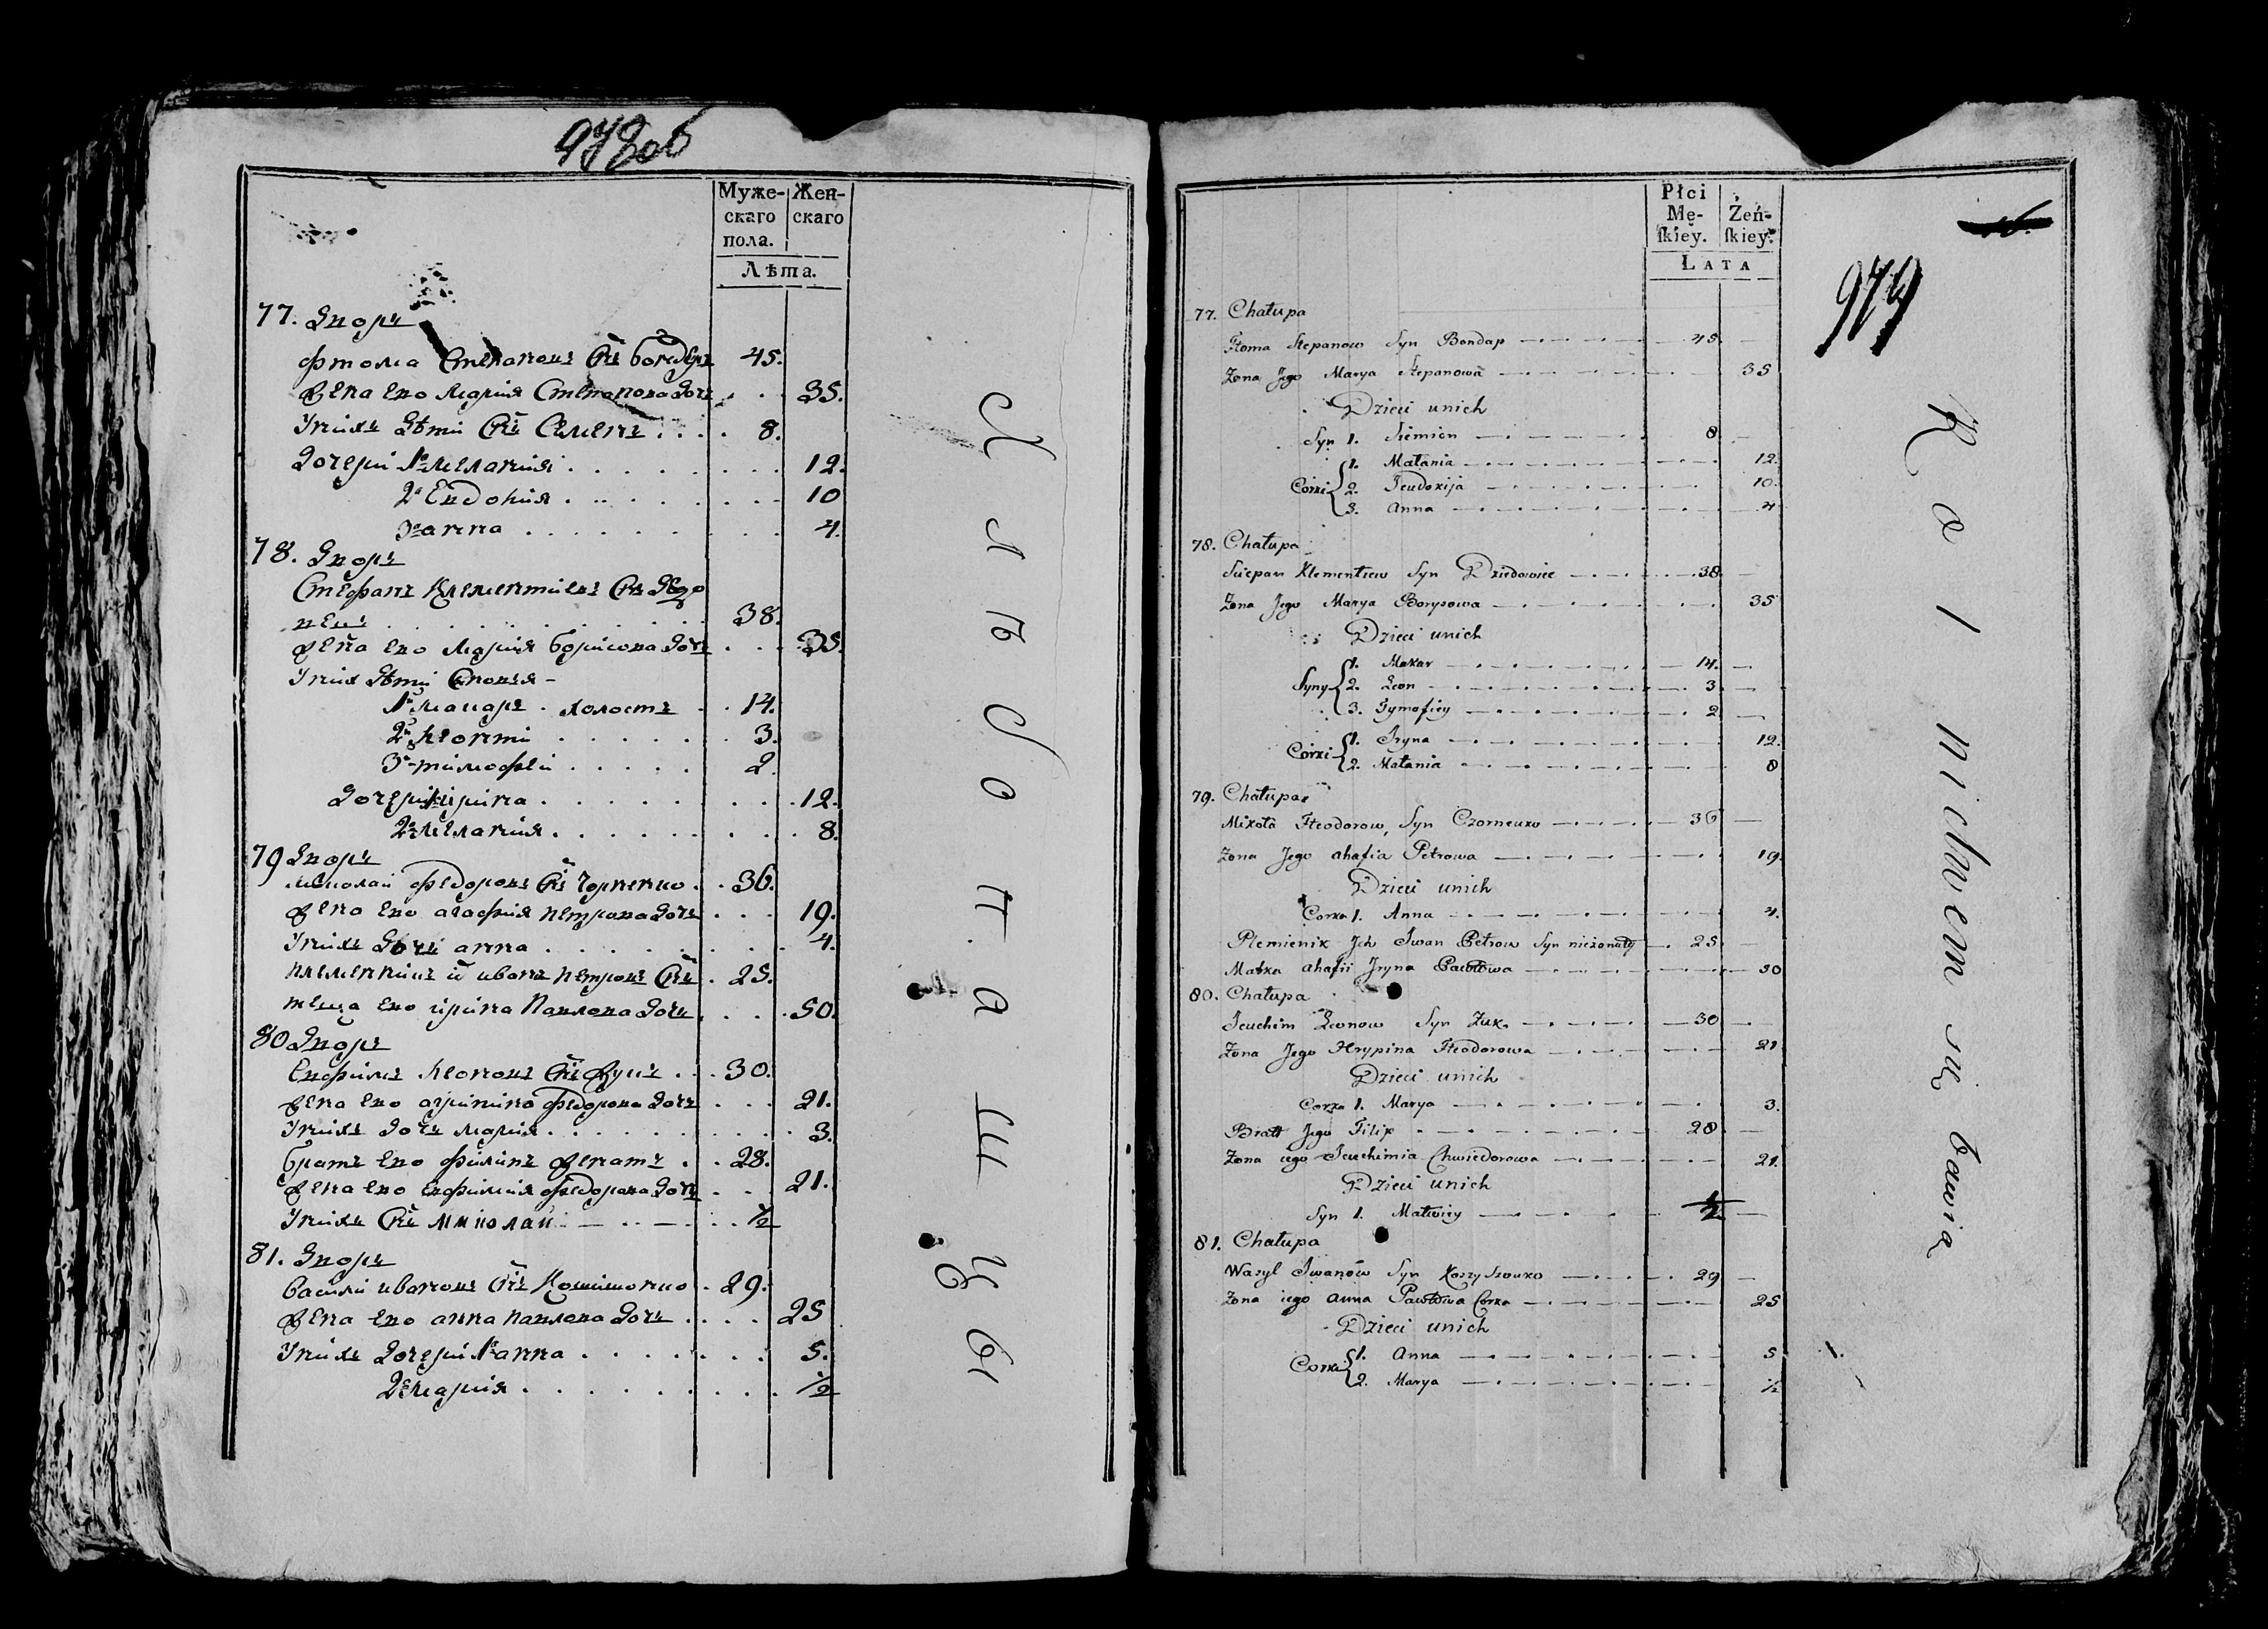 978об
Муже-
скаго
пола.
Жен-
скаго
Лѣта.
77. Дворъ
Фтома Степановъ Снъ бондаръ 45.
жена ево Марiя Степанова дочь 35.
Унихъ дѣти Снъ Семенъ 8.
дочери 1я Мелания 12.
2я Евдокия 10
3я анна 4.
78. Дворъ
Стефанъ Клементиевъ Снъ
38.
жена ево Мария борисова дочь 35.
Уних дѣти Сновья
1й макаръ холостъ 14.
2й Леонти 3.
3й тимофѣи 2
дочери 1я ирина 12.
2я Мелания 8.
79 Дворъ
миколаи федоровъ Снъ Чорненко 36.
жена ево агафия петрова дочь 19.
Унихъ дочь анна 4.
племенникъ иванъ петровъ Снъ 25.
теща ево ирина Павлова дочь 50.
80 Дворъ
Евфимъ Леоновъ Снъ жукъ 30.
жена ево агрипина федорова дочь 21.
Унихъ дочь мария 3.
братъ ево филипъ женатъ 28.
жена ево Евфимия федорова дочь 21.
Унихъ Снъ миколаи ½
81. Дворъ
Васили ивановъ Снъ Кошишонко 29.
жена ево анна павлова дочь 25
Унихъ дочери 1я анна 5.
2я Мария ½
Хлѣбопашцы
Płci
Mę-
ſkiey.
Żeń-
ſkiey.
LATA
979
77. Chałupa
Ftoma Stepanow Syn Bondap 45.
Zona Jego Marya Stepanowa 35
Dzieci unich
Syn 1. Siemion 8
Corki 1. Matania 12.
2. Jeudoxija 10.
3. Anna 4
78. Chałupa
Sciepan Klementiew Syn Dziedowiec 38
Zona Jego Marya Borysowa 35
Dzieci unich
Syny 1. Makar 14.
2. Leon 3
3. Tymofiey 2
Corki 1. Jryna 12.
2. Matania 8
79. Chałupa
Mikoła Fteodorow Syn Czorneuko 36
Zona Jego ahafia Petrowa 19.
Dzieci unich
Corka 1. Anna 4.
Plemienik Jch Jwan Petrow Syn nieżonaty 25
Matka ahafii Jryna Pawłowa 50
80. Chałupa
Jeuchim Leonow Syn Żuk 30
Zona Jego Hrypina Fteodorowa 21
Dzieci unich
Corka 1. Marya 3.
Bratt Jego Filip 28
Zona iego Jeuchimia Chwiedorowa 21.
Dzieci unich
Syn 1. Matwiey ½
81. Chałupa
Wasyl Jwanow Syn Koszyszonko 29
Zona iego anna Pawłowa Corka 25
Dzieci unich
Corki 1. Anna 5
2. Marya ½
Rolnictwem się bawią